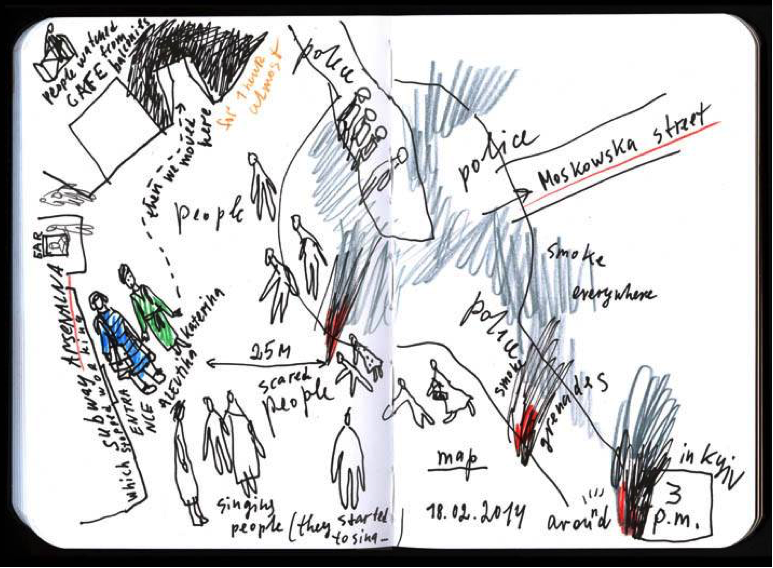 people watched
CAFE from
balconies
for 1 hour
almost
then we moved
here
police
police
Moskowska street
people
BAR
smoke
everywhere
subway Arsenalna
which stopped working
ENTRA
NCE
Alevtina & Katerina
25M
scared
people
police
smoke
grenades
map
18.02.2014
singing
people (they started
to sing–
around
3
p.m.
in Kyiv